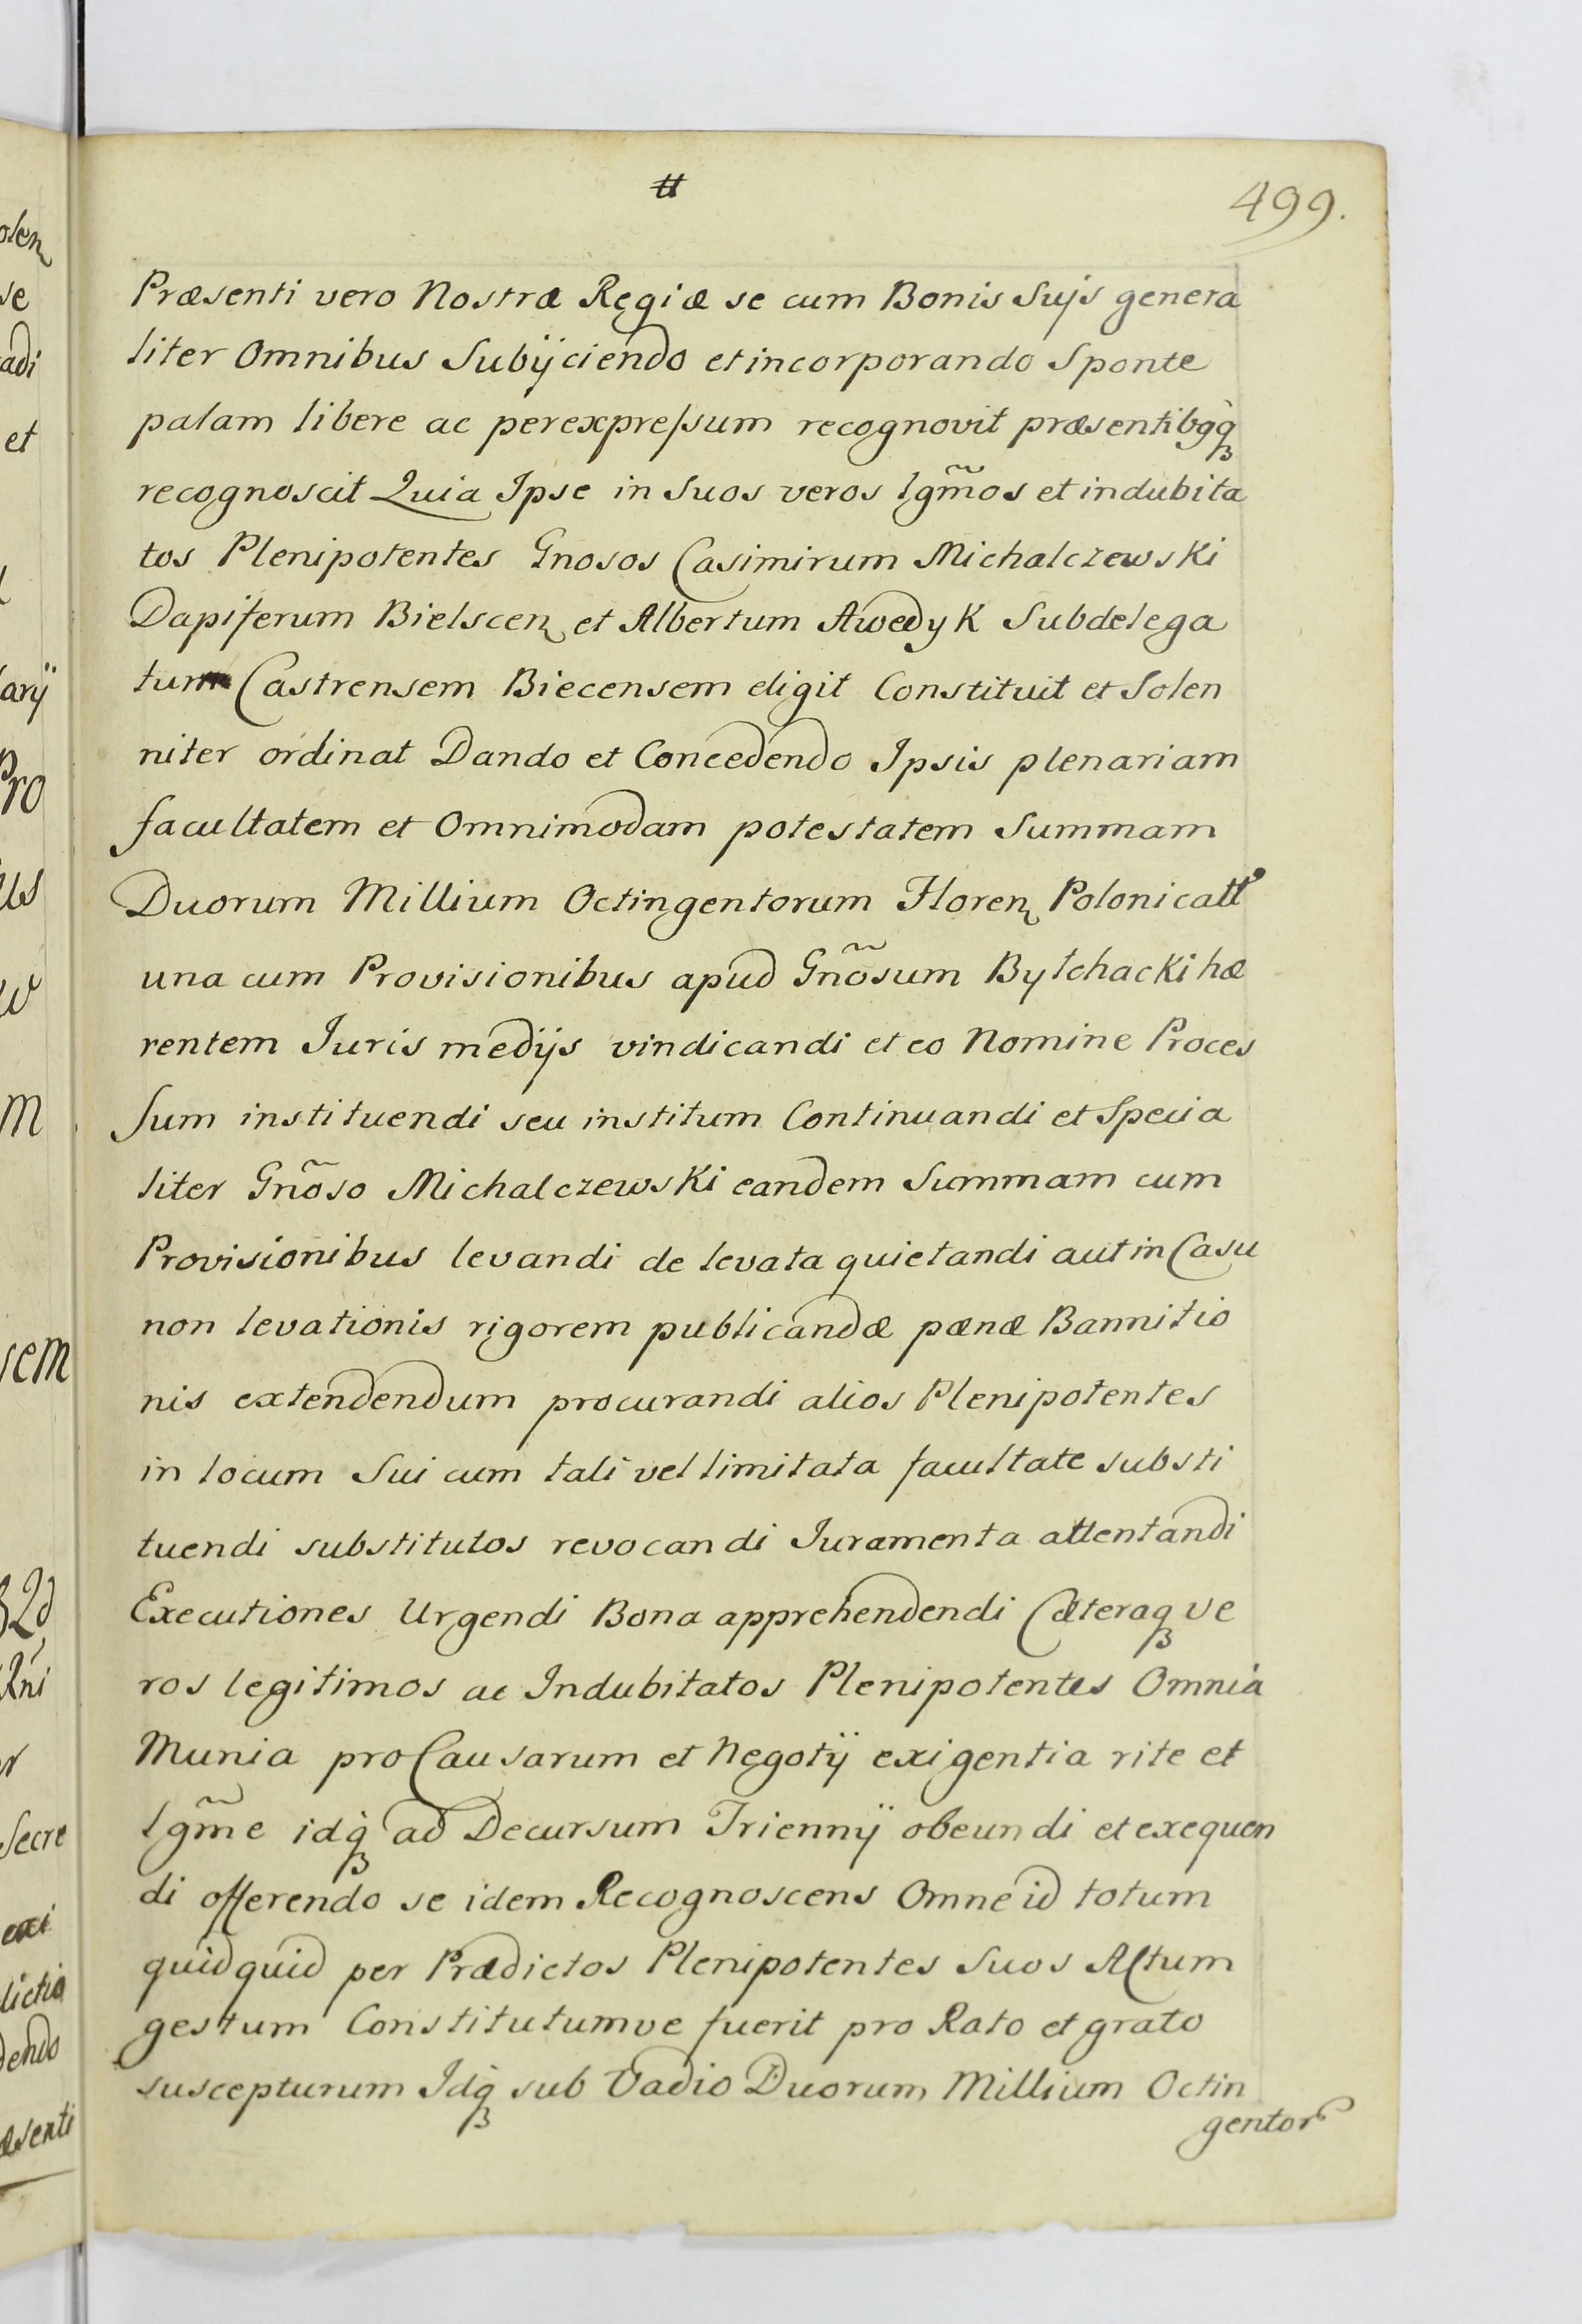 499.
Præsenti vero Nostræ Regiæ se cum Bonis Suÿs genera
liter Omnibus Subÿciendo et incorporando Sponte
palam libere ac perexpressum recognovit præsentibqꝫ
recognoscit Quia Ipse in Suos veros lgm̃os et indubita
tos Plenipotentes Gnosos Casimirum Michalczewski
Dapiferum Bielscen et Albertum Awedyk Subdelega
tum Castrensem Biecensem eligit Constituit et Solen
niter ordinat Dando et Concedendo Ipsis plenariam
facultatem et Omnimodam potestatem Summam
Duorum Millium Octingentorum Floren Polonicall
una cum Provisionibus apud Gnõsum Bylchacki hæ
rentem Iuris medijs vindicandi et eo Nomine Proces
Sum instituendi seu institum Continuandi et Specia
liter Gnõso Michalczewski eandem Summam cum
Provisionibus levandi de levata quietandi aut in Casu
non levationis rigorem publicandæ pænæ Bannitio
nis extendendum procurandi alios Plenipotentes
in locum Sui cum tali vel limitata facultate substi
tuendi substitutos revocandi Iuramenta attentandi
Executiones Urgendi Bona apprehendendi Cæteraqꝫ ve
ros legitimos ac Indubitatos Plenipotentes Omnia
Munia pro Causarum et Negotÿ exigentia rite et
lgm̃e idqꝫ ad Decursum Triennÿ obeundi et exequen
di offerendo se idem Recognoscens Omne id totum
quidquid per Prædictos Plenipotentes Suos Actum
gestum Constitutumve fuerit pro Rato et grato
suscepturum Idqꝫ sub Vadio Duorum Millium Octin
gentor